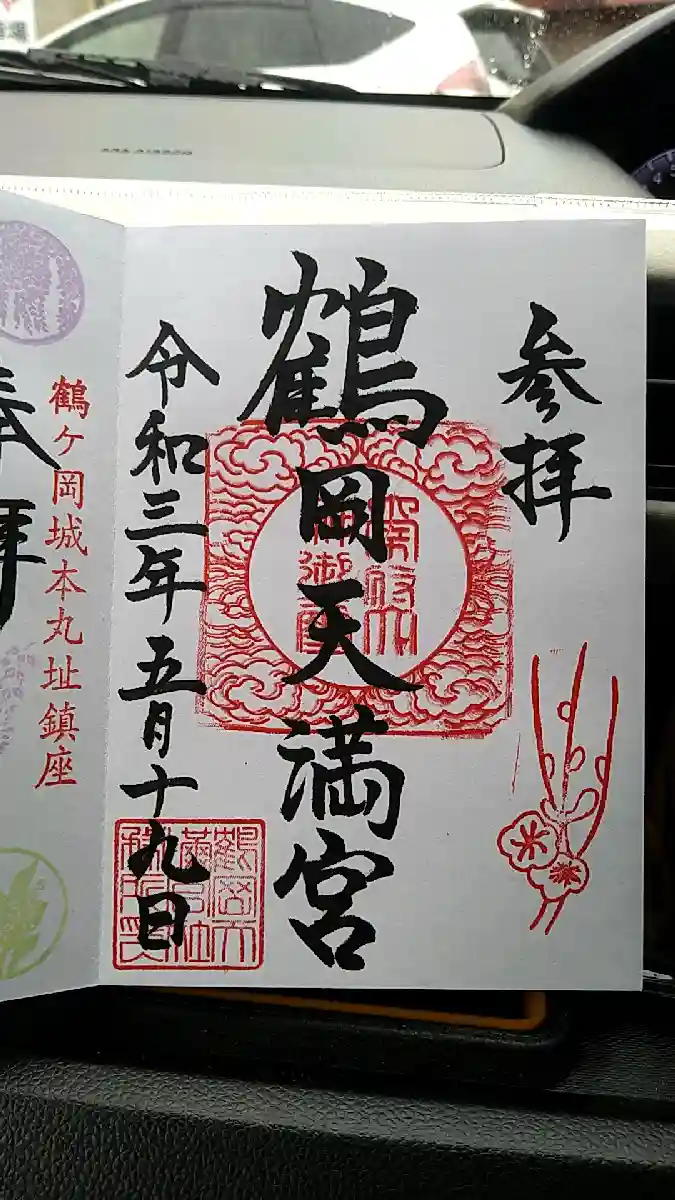 参拝
鶴岡天満宮
令和三年五月十九日
鶴ヶ岡城本丸址鎮座
奉拝